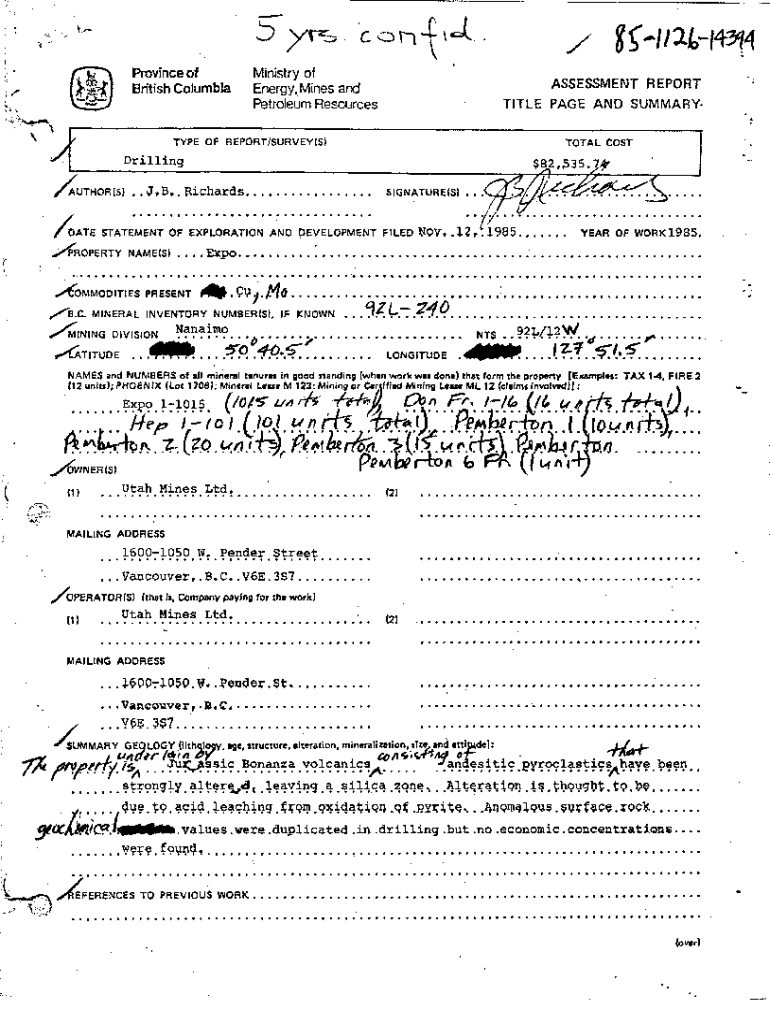 5 yrs. confid.
85-1126-14394
Province of
British Columbia
Ministry of
Energy, Mines and
Petroleum Resources
ASSESSMENT REPORT
TITLE PAGE AND SUMMARY
TYPE OF REPORT/SURVEY(S)
TOTAL COST
Drilling
$82,535.74
AUTHOR(S) J.B. Richards
SIGNATURE(S) JB Richards
DATE STATEMENT OF EXPLORATION AND DEVELOPMENT FILED Nov. 12, 1985 YEAR OF WORK 1985
PROPERTY NAME(S) Expo
COMMODITIES PRESENT Cu, Mo
B.C. MINERAL INVENTORY NUMBER(S), IF KNOWN 92L-240
MINING DIVISION Nanaimo NTS 92L/12W
LATITUDE 50° 40.5' LONGITUDE 127° 51.5'
NAMES and NUMBERS of all mineral tenures in good standing (when work was done) that form the property [Examples: TAX 1-4, FIRE 2
(12 units); PHOENIX (Lot 1706); Mineral Lease M 123; Mining or Certified Mining Lease ML 12 (claims involved)]:
Expo 1-1015 (1015 units total), Don Fr. 1-16 (16 units total),
Hep 1-101 (101 units total), Pemberton 1 (10 units),
Pemberton 2 (20 units), Pemberton 3 (15 units) Pemberton
Pemberton 6 Fr. (1 unit)
OWNER(S)
(1) Utah Mines Ltd. (2)
MAILING ADDRESS
1600-1050 W. Pender Street
Vancouver, B.C. V6E 3S7
OPERATOR(S) (that is, Company paying for the work)
(1) Utah Mines Ltd. (2)
MAILING ADDRESS
1600-1050 W. Pender St.
Vancouver, B.C.
V6E 3S7
SUMMARY GEOLOGY (lithology, age, structure, alteration, mineralization, size, and attitude):
The property is underlain by Jurassic Bonanza volcanics consisting of andesitic pyroclastics that have been
strongly altered, leaving a silica zone. Alteration is thought to be
due to acid leaching from oxidation of pyrite. Anomalous surface rock
geochemical values were duplicated in drilling but no economic concentrations
were found.
REFERENCES TO PREVIOUS WORK
(over)